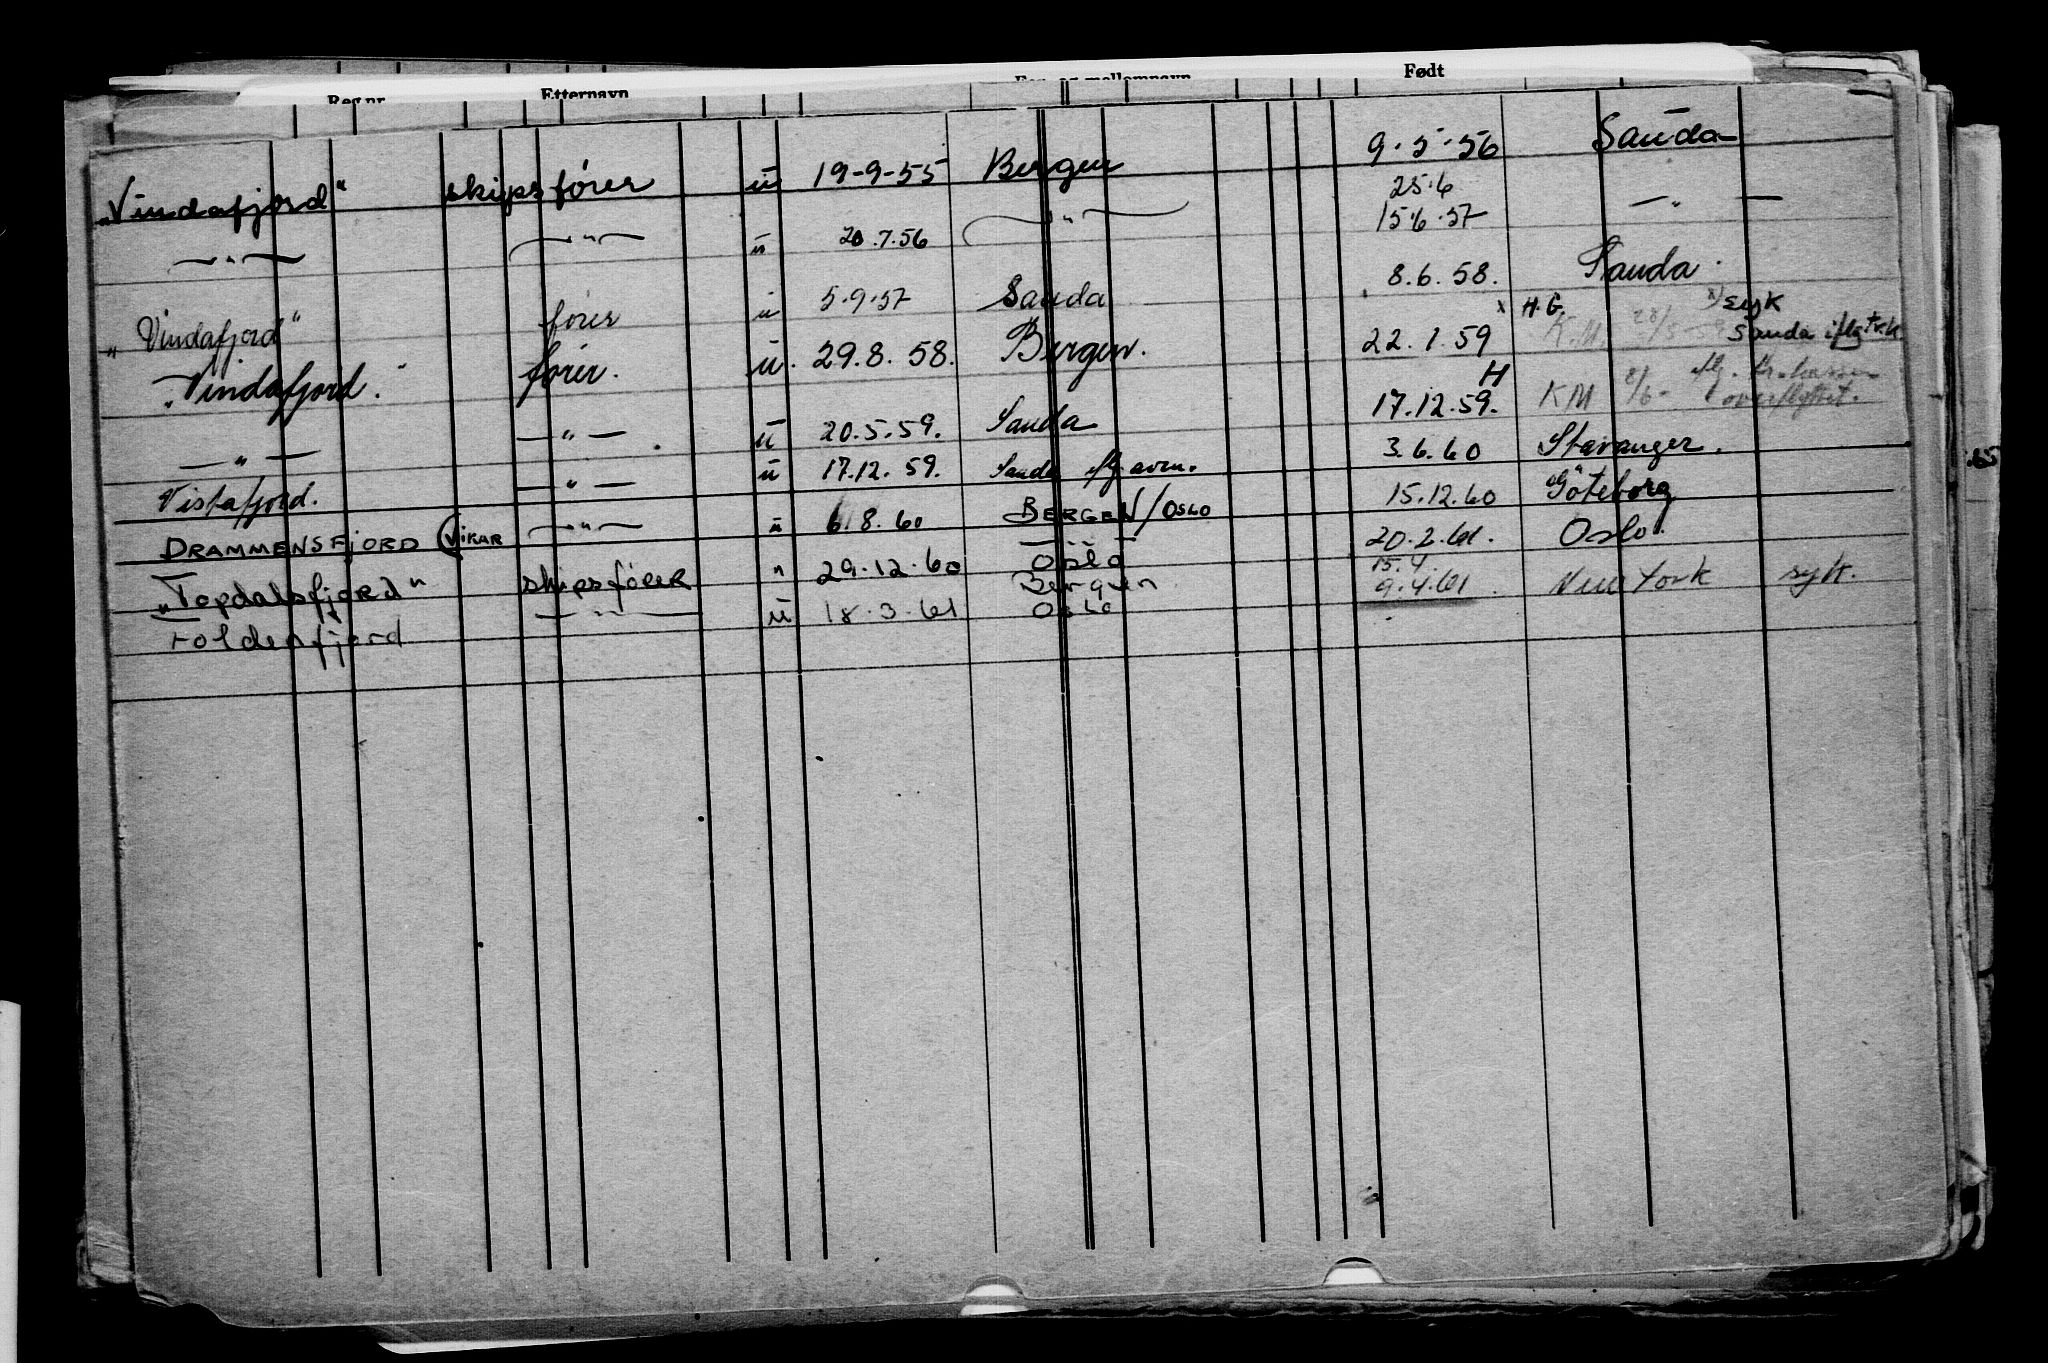 Reg.nr. Etternavn For- og mellomnavn Født
„Vindafjord" skipsfører ü 19-9-55 Bergen 9-5-56 Sauda
—"— —"— ü 20.7.56 —"— 25.6 15.6.57 —"—
„Vindafjord" fører ü 5.9.57 Sauda 8.6.58. Sauda.
„Vindafjord." fører. ü. 29.8.58. Bergen. 22.1.59 x H.G. K.M. 28/5-59 x) syk Sauda iflg
—"— —"—. ü 20.5.59. Sauda 17.12.59. H KM 8/6- iflg. overflyttet.
Vistafjord. —"— ü 17.12.59. Sauda iflg 3.6.60 Stavanger.
DRAMMENSFJORD (VIKAR —"— ü 6.8.60 BERGEN/OSLO 15.12.60 Göteborg
„Topdalsfjord" skipsfører " 29.12.60 Oslo 20.2.61. Oslo.
Foldenfjord —"— ü 18.3.61 Bergen Oslo 15.4. 9.4.61. New York syk.